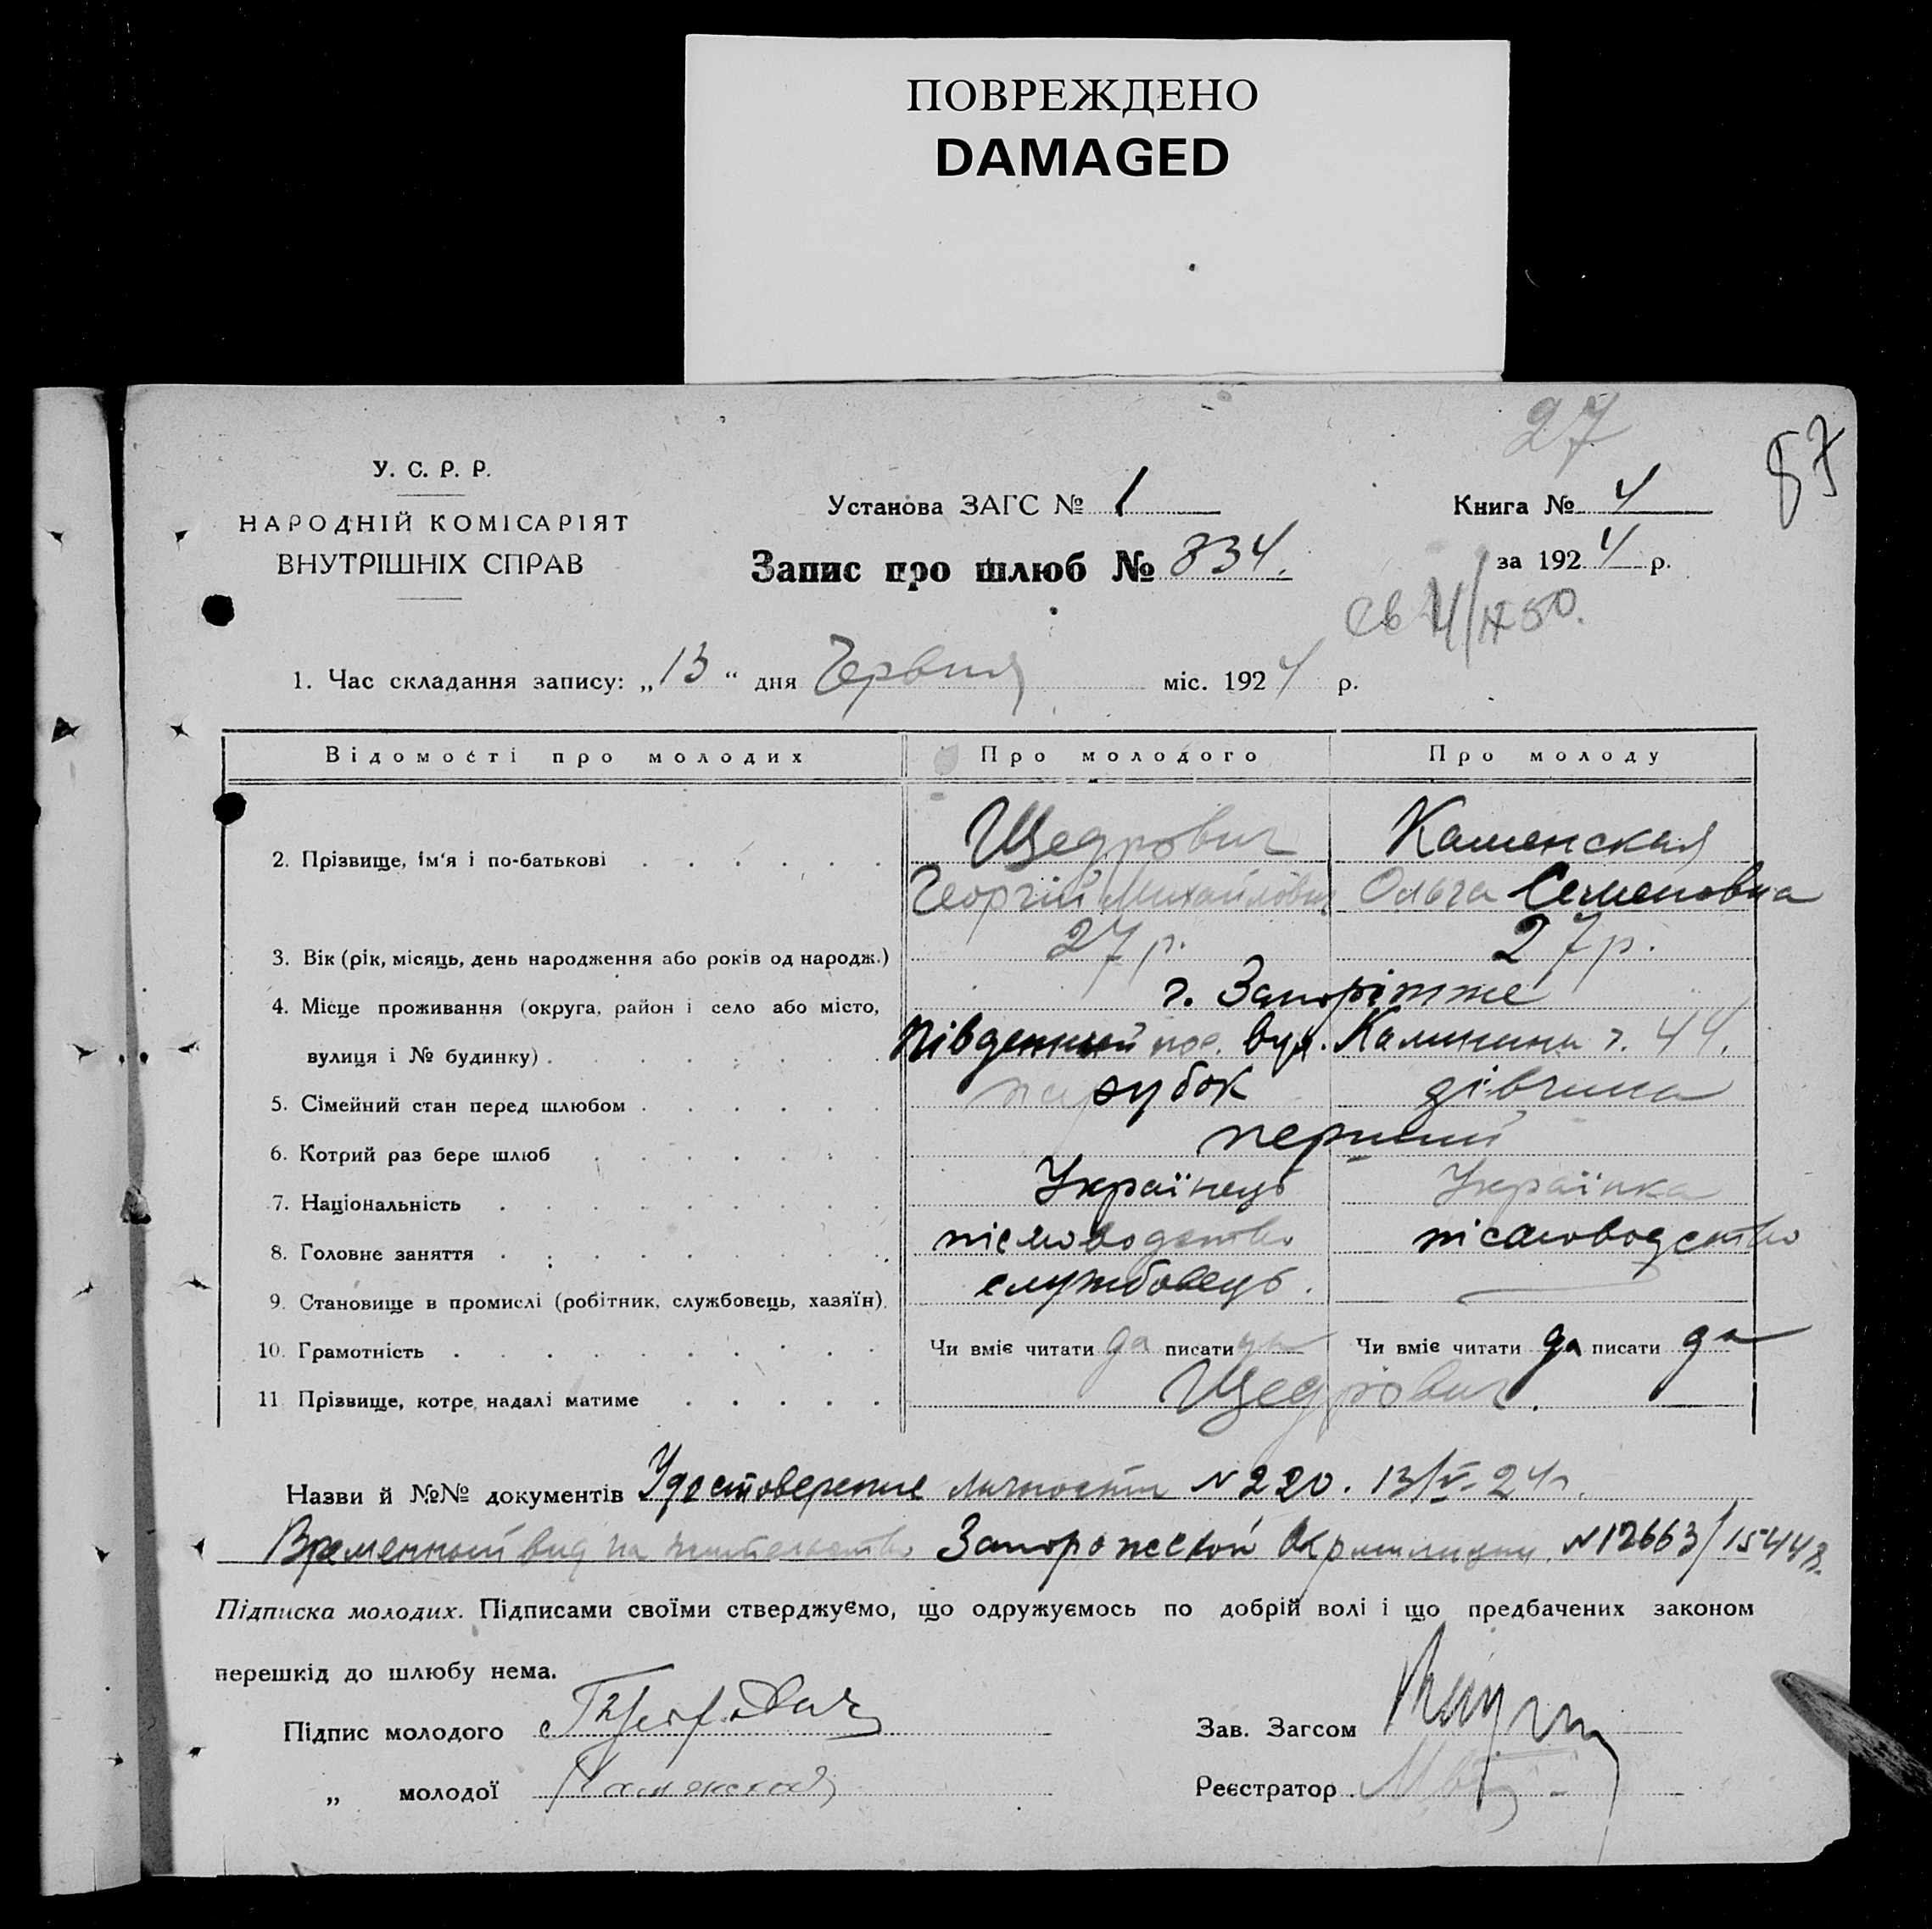 ПОВРЕЖДЕНО
DAMAGED
27
87
У. С. Р. Р.
НАРОДНІЙ КОМІСАРІЯТ
ВНУТРІШНІХ СПРАВ
Установа ЗАГС № 1
Книга № 4
Запис про шлюб № 834.
за 1924 р.
1. Час складання запису: „13“ дня Червня міс. 1924 р.
Відомості про молодих Про молодого Про молоду
Щедрович Каменская
2. Прізвище, ім'я і по-батькові
Георгій Михайлович Ольга Семеновна
3. Вік (рік, місяць, день народження або років од народж.) 27 р. 27 р.
4. Місце проживання (округа, район і село або місто, г. Запоріжже
вулиця і № будинку) Південный пос. вул. Калинина 44.
5. Сімейний стан перед шлюбом парубок дівчина
6. Котрий раз бере шлюб перший
7. Національність Українець Українка
8. Головне заняття письмоводство письмоводство
9. Становище в промислі (робітник, службовець, хазяїн) службовець.
10. Грамотність Чи вміє читати да писати да Чи вміє читати да писати да
11 Прізвище, котре надалі матиме Щедрович.
Назви й №№ документів Удостоверение личности N 220. 13/V-24г.
Временный вид на жительство Запорожской Окрмилиции N 12663/15448.
Підписка молодих. Підписами своїми стверджуємо, що одружуємось по добрій волі і що предбачених законом
перешкід до шлюбу нема.
Підпис молодого
Зав. Загсом
„ молодої Каменская
Реєстратор